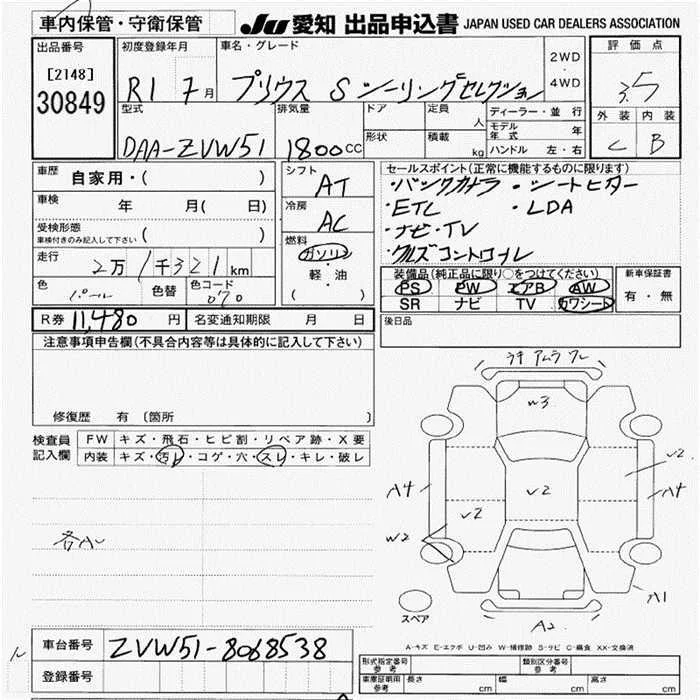 車内保管・守衛保管 JU 愛知 出品申込書 JAPAN USED CAR DEALERS ASSOCIATION
出品番号 初度登録年月 車名・グレード 2WD・4WD 評価点
[2148]
30849 R1 7月 プリウス S ツーリングセレクション 3.5
型式 排気量 ドア 定員 人 ディーラー・並行 外装 内装
DAA-ZVW51 1800cc 形状 積載 kg モデル年式 年 C B
ハンドル 左・右
車歴 自家用・( ) シフト AT セールスポイント(正常に機能するものに限ります)
・バックカメラ ・シートヒーター
車検 年 月( 日) 冷房 AC ・ETC ・LDA
受検形態 ・ナビ・TV
車検付きのみ記入して下さい ( ) 燃料 ガソリン ・クルーズコントロール
走行 2万1千321km 軽・油 装備品(純正品に限り○をつけてください) 新車保証書
( ) PS PW エアB AW 有・無
色 パール 色替 色コード 070 SR ナビ TV カワシート
R券 11,480円 名変通知期限 月 日 後日品
注意事項申告欄(不具合内容等は具体的に記入して下さい)
修復歴 有 (箇所 )
検査員記入欄 FW キズ・飛石・ヒビ割・リペア跡・X要
内装 キズ・汚レ・コゲ・穴・スレ・キレ・破レ
W3
V2
A4 V2 V2 A4
W2
各A
A1
スペア
A2
A-キズ E-エクボ U-凹み W-補修跡 S-サビ C-腐食 XX-交換済
車台番号 ZVW51-8068538
登録番号
形式指定番号 参考 類別区分番号 参考
車庫証明用 参考 長さ cm 幅 cm 高さ cm